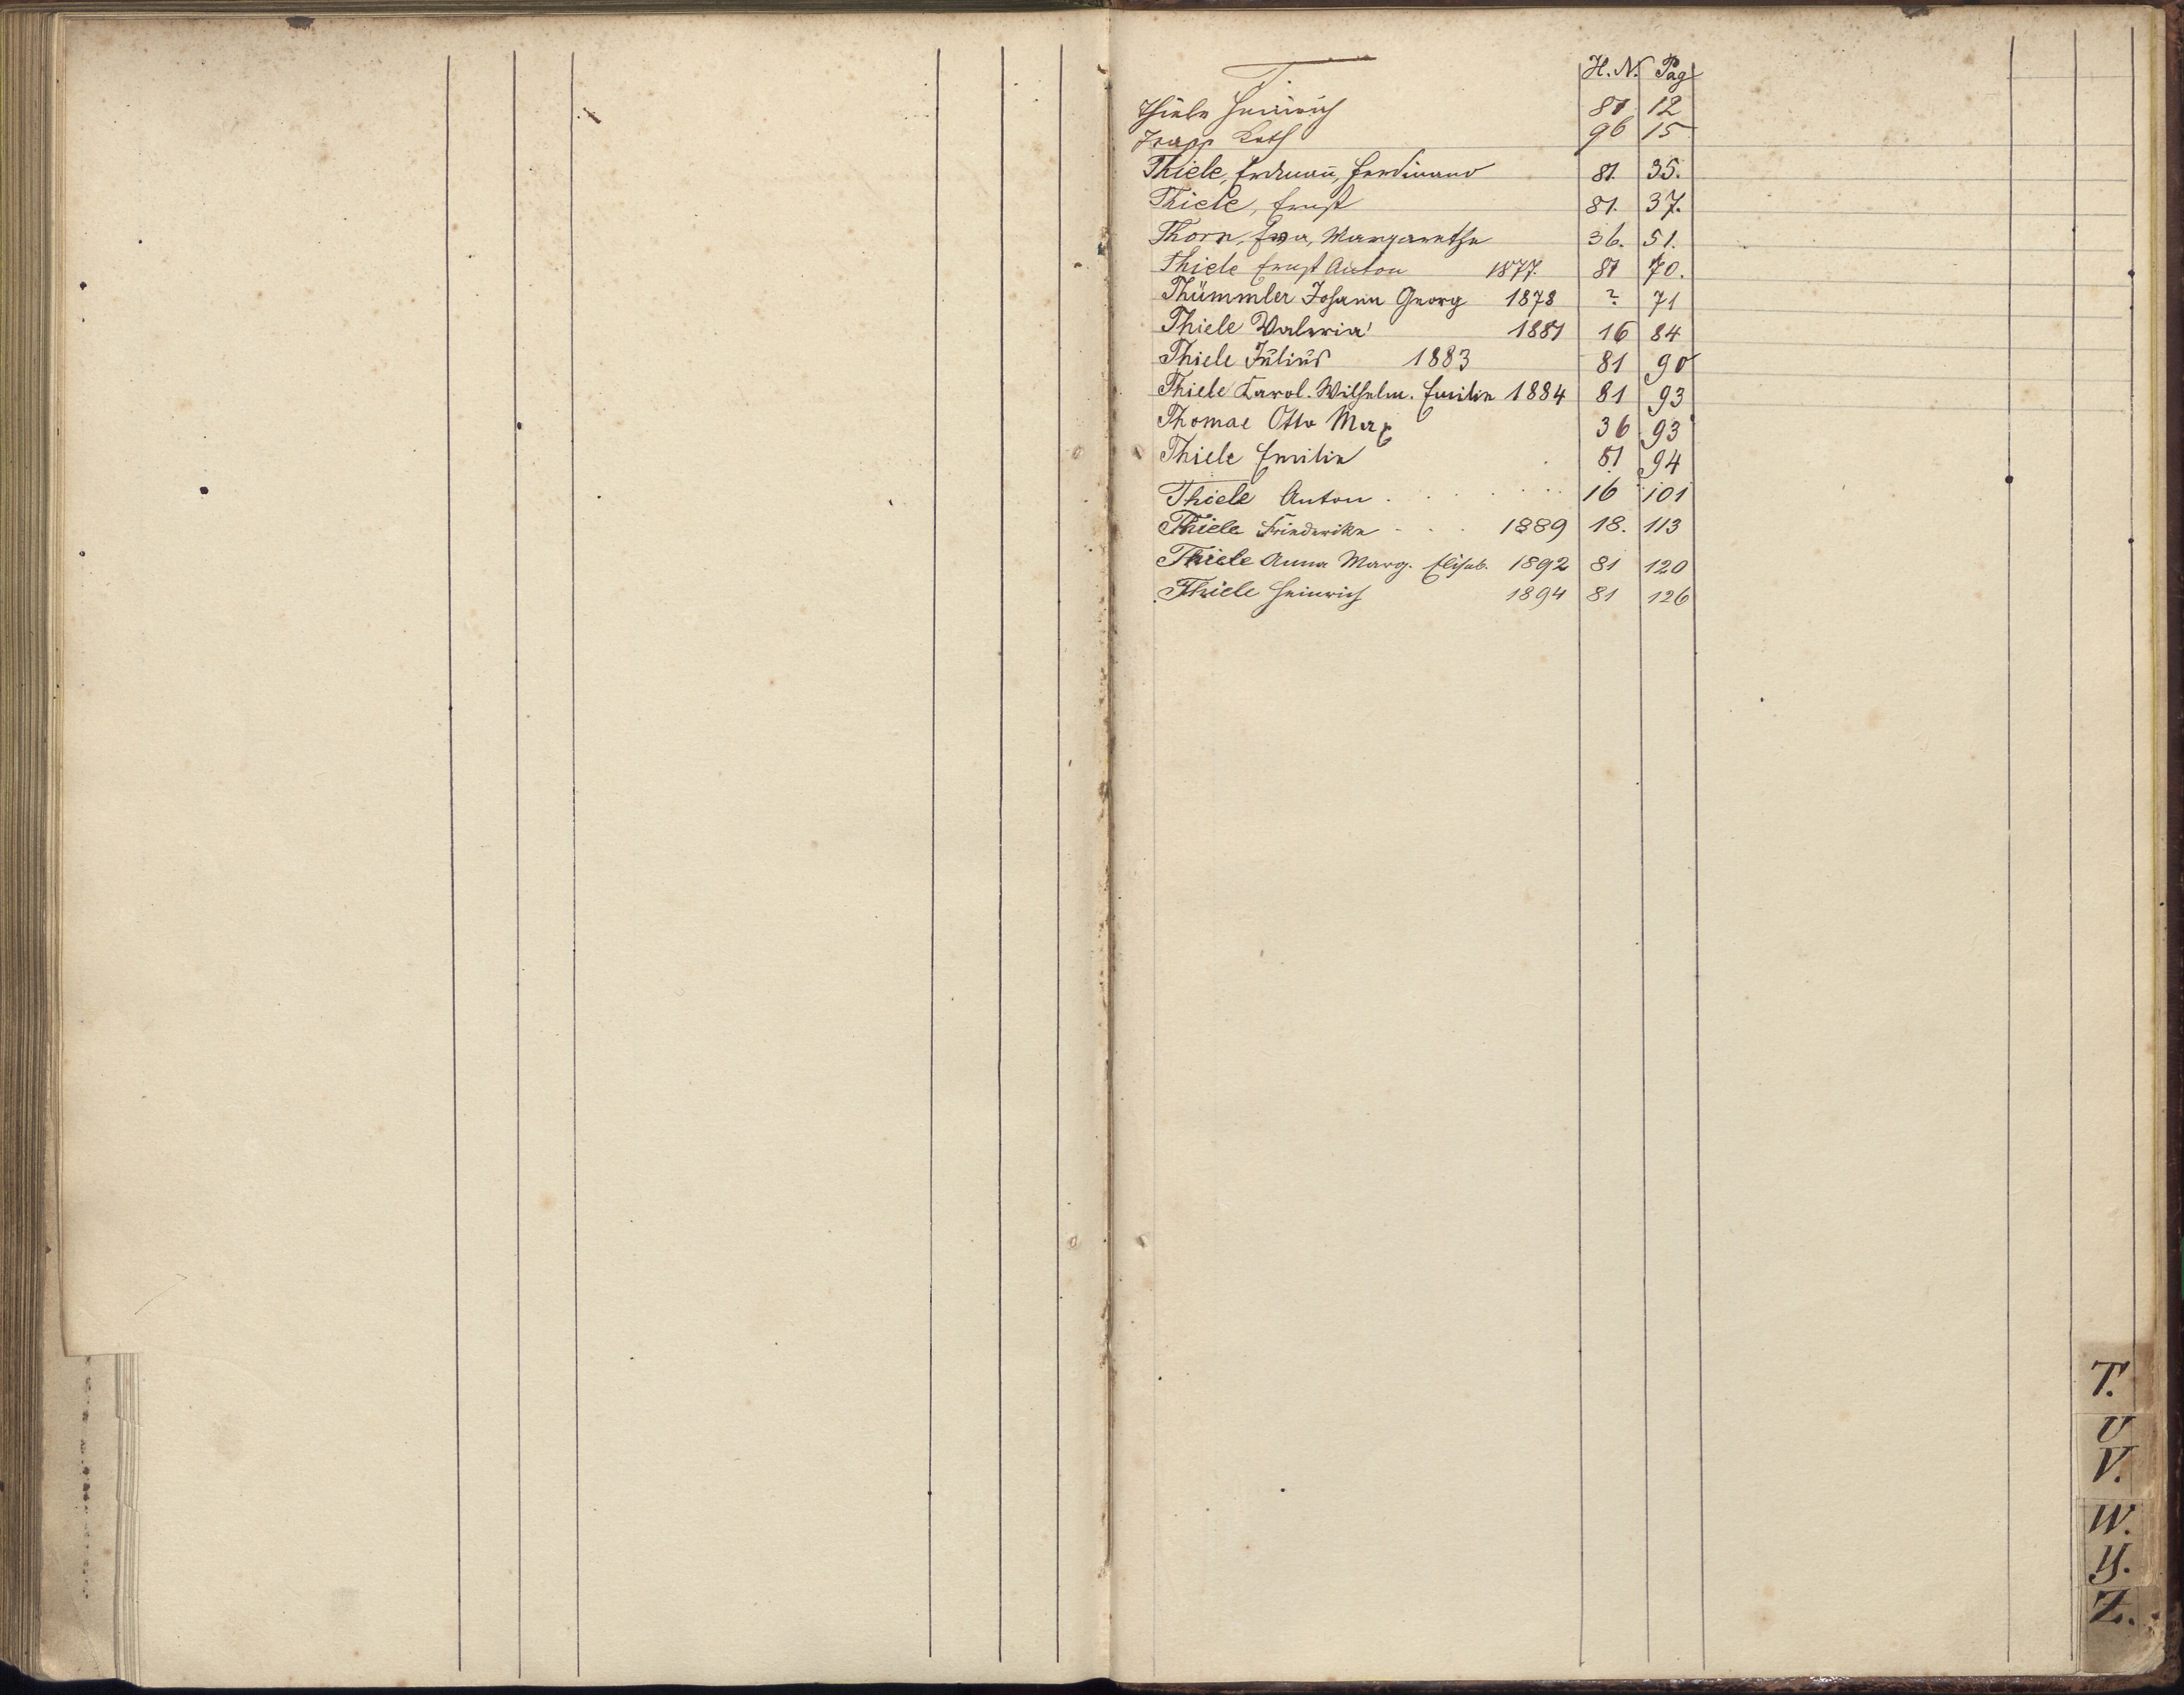 T. H. N. Pag
Thiele Heinrich 81 12
Trapp Kath 96 15
Thiele, Erdmann, Ferdinand 81. 35.
Thiele, Ernst 81. 37.
Thorn, Eva, Margarethe 36. 51.
Thiele Ernst Anton 1877. 81 70.
Thümmler Johann Georg 1878 ? 71
Thiele Valeria 1881 16 84
Thiele Julius 1883 81 90
Thiele Karol. Wilhelm. Emilie 1884 81 93
Thomae Otto Max 36 93
Thiele Emilie 81 94
Thiele Anton . . . . . . . 16 101
Thiele Friederike - . . 1889 18. 113
Thiele Anna Marg. Elisab. 1892 81 120
Thiele Heinrich 1894 81 126
T.
U
V.
W.
Y.
Z.